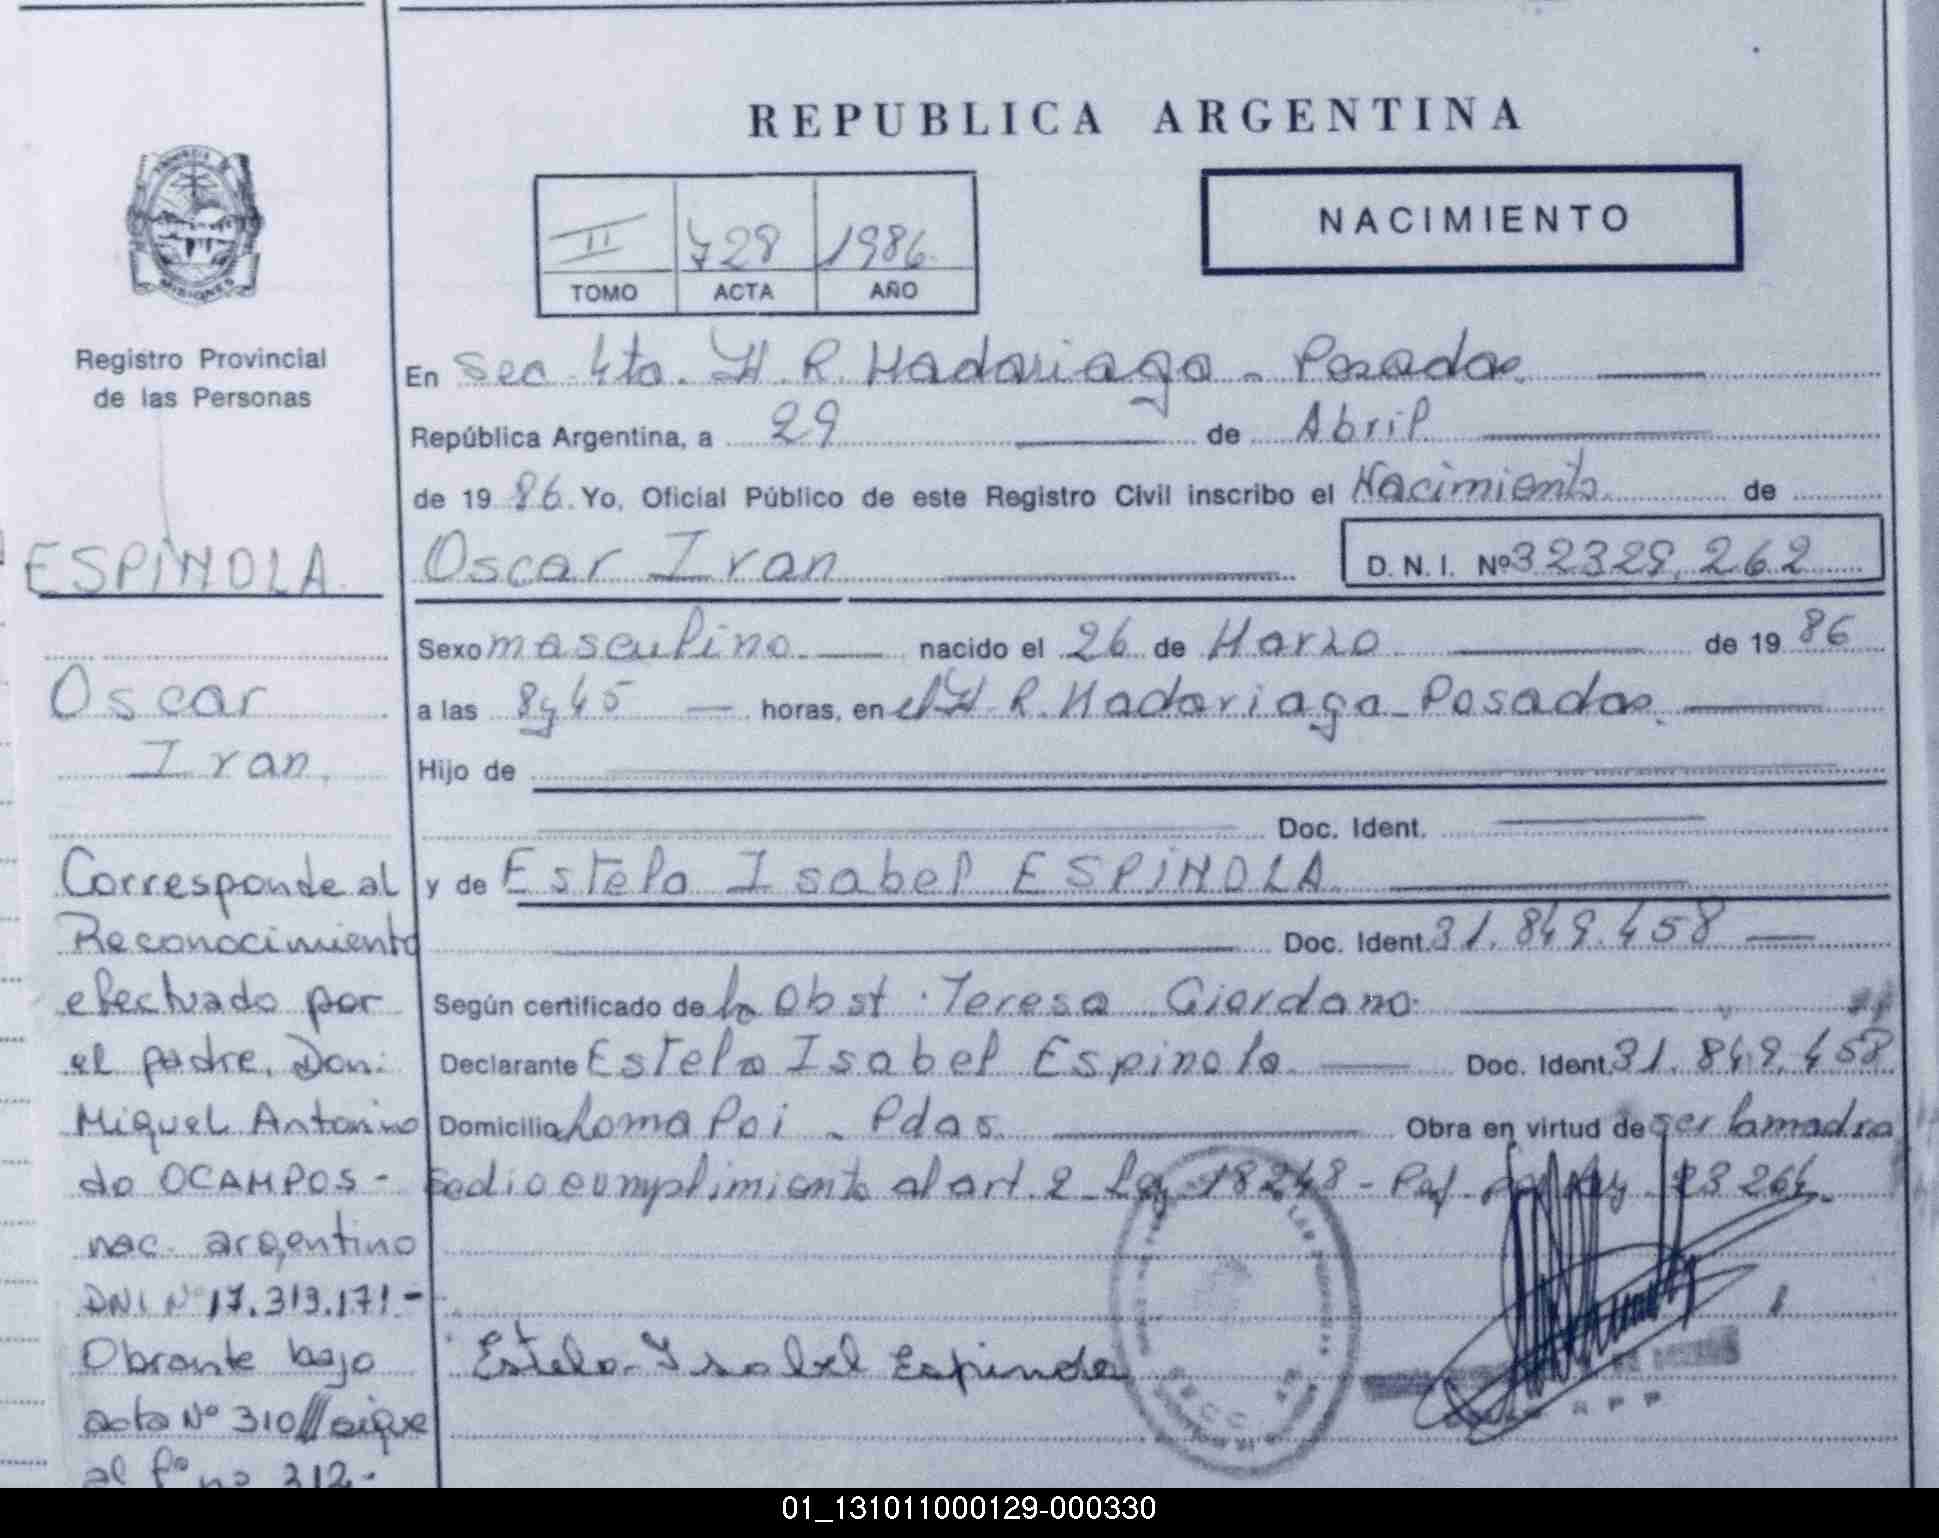 REPUBLICA ARGENTINA
NACIMIENTO
II 728 1986
TOMO ACTA AÑO
MISIONES
Registro Provincial
de las Personas
ESPINOLA
Oscar
Ivan
Corresponde al
Reconocimiento
efectuado por
el padre, Don:
Miguel Antonino
do OCAMPOS -
nac. argentino
DNI Nº 17.313.171 -
Obrante bajo
acta Nº 310 // sigue
al fº nº 312 -
En Sec. 4ta. H. R. Madariaga - Posadas
República Argentina, a 29 de Abril
de 19 86. Yo, Oficial Público de este Registro Civil inscribo el Nacimiento de
Oscar Ivan D. N. I. Nº 32329.262
Sexo masculino nacido el 26 de Marzo de 19 86
a las 8 y 45 horas, en el H. R. Madariaga - Posadas
Hijo de
Doc. Ident.
y de Estela Isabel ESPINOLA
Doc. Ident. 31.849.458
Según certificado de la Obst. Teresa Giordano
Declarante Estela Isabel Espinola Doc. Ident. 31.849.458
Domicilio Loma Poi - Pdas. Obra en virtud de ser la madre
se dio cumplimiento al art. 2 Ley 18248 - Ref. Ley 23264.
Estela Isabel Espinola
01_131011000129-000330